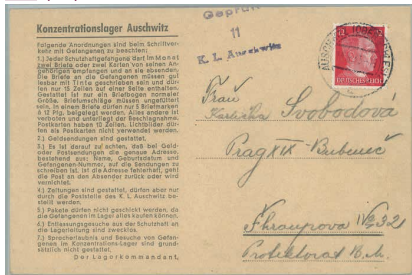 Konzentrationslager Auschwitz
Folgende Anordnungen sind beim Schriftver-
kehr mit Gefangenen zu beachten:
1.) Jeder Schutzhaftgefangene darf im Monat
zwei Briefe oder zwei Karten von seinen An-
gehörigen empfangen und an sie absenden.
Die Briefe an die Gefangenen müssen gut
lesbar mit Tinte geschrieben sein und dür-
fen nur 15 Zeilen auf einer Seite enthalten.
Gestattet ist nur ein Briefbogen normaler
Größe. Briefumschläge müssen ungefüttert
sein. In einem Briefe dürfen nur 5 Briefmarken
à 12 Pfg. beigelegt werden. Alles andere ist
verboten und unterliegt der Beschlagnahme.
Postkarten haben 10 Zeilen. Lichtbilder dür-
fen als Postkarten nicht verwendet werden.
2.) Geldsendungen sind gestattet.
3.) Es ist darauf zu achten, daß bei Geld-
oder Postsendungen die genaue Adresse,
bestehend aus: Name, Geburtsdatum und
Gefangenen-Nummer, auf die Sendungen zu
schreiben ist. Ist die Adresse fehlerhaft, geht
die Post an den Absender zurück oder wird
vernichtet.
4.) Zeitungen sind gestattet, dürfen aber nur
durch die Poststelle des K. L. Auschwitz be-
stellt werden.
5.) Pakete dürfen nicht geschickt werden, da
die Gefangenen im Lager alles kaufen können.
6.) Entlassungsgesuche aus der Schutzhaft an
die Lagerleitung sind zwecklos.
7.) Sprecherlaubnis und Besuche von Gefan-
genen im Konzentrations-Lager sind grund-
sätzlich nicht gestattet.
Der Lagerkommandant.
Geprüft
11
K. L. Auschwitz
AUSCHWITZ
12
DEUTSCHES REICH
Frau
Svobodová
Prag XIX - Bubeneč
32
Protektorat B.M.